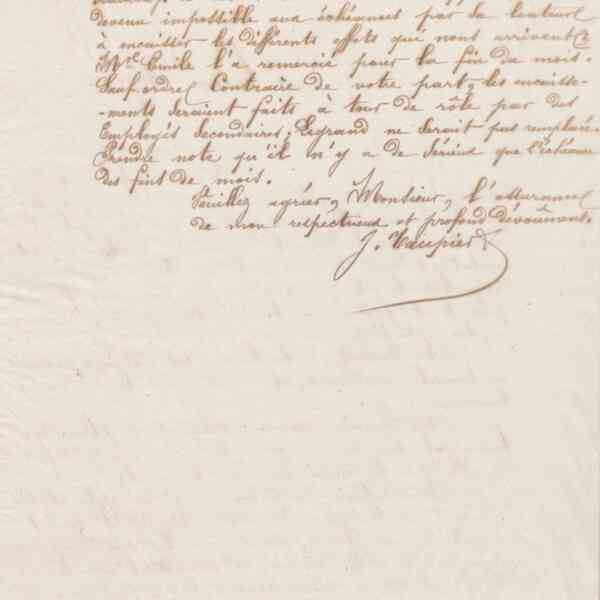 devenu impossible aux échéances par sa lenteur
à encaisser les différents effets qui nous arrivent &
Mr Emile l'a remercié pour la fin du mois.
Sauf ordre Contraire de votre part, les encaisse-
-ments seraient faits à tour de rôle par des
Employés secondaires; Legrand ne serait pas remplacé.
Prendre note qu'il n'y a de sérieux que l'échéance
des fins de mois.
Veuillez agréer, Monsieur, l'assurance
de mon respectueux et profond dévouement.
J. Vaupier